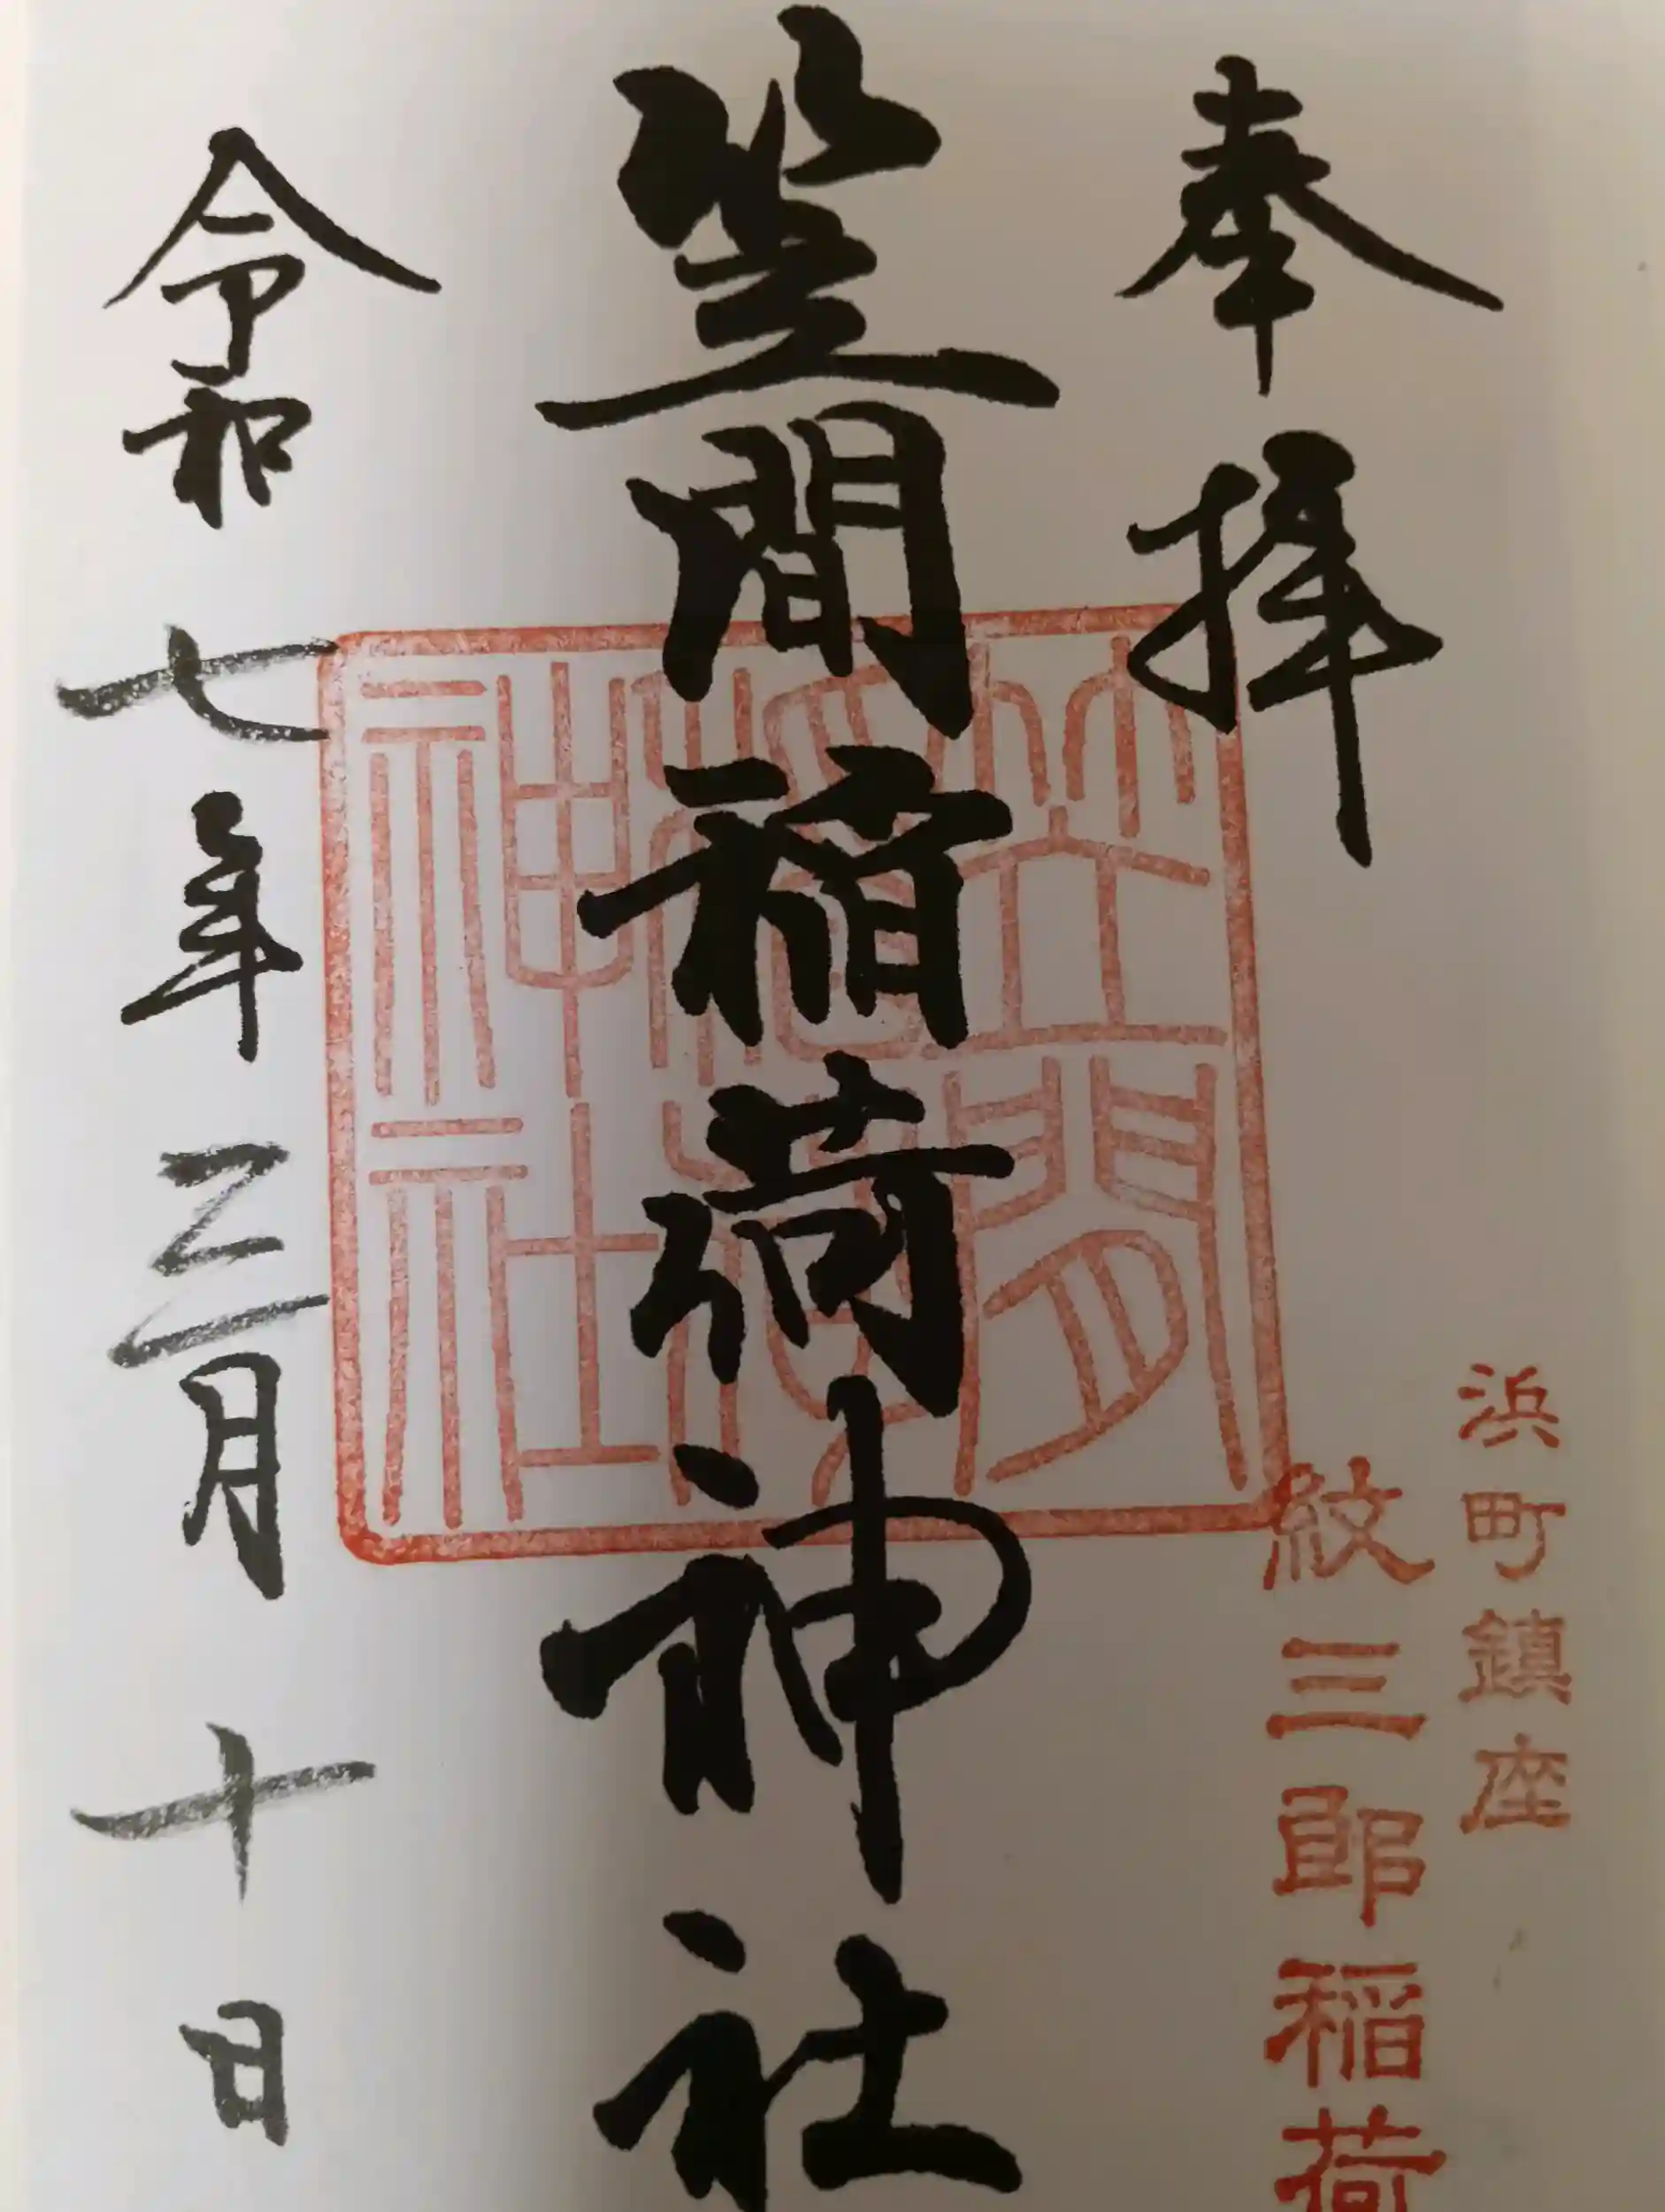 奉拝
浜町鎮座
紋三郎稲荷
笠間稲荷神社
笠間稲荷神社
令和七年三月十日